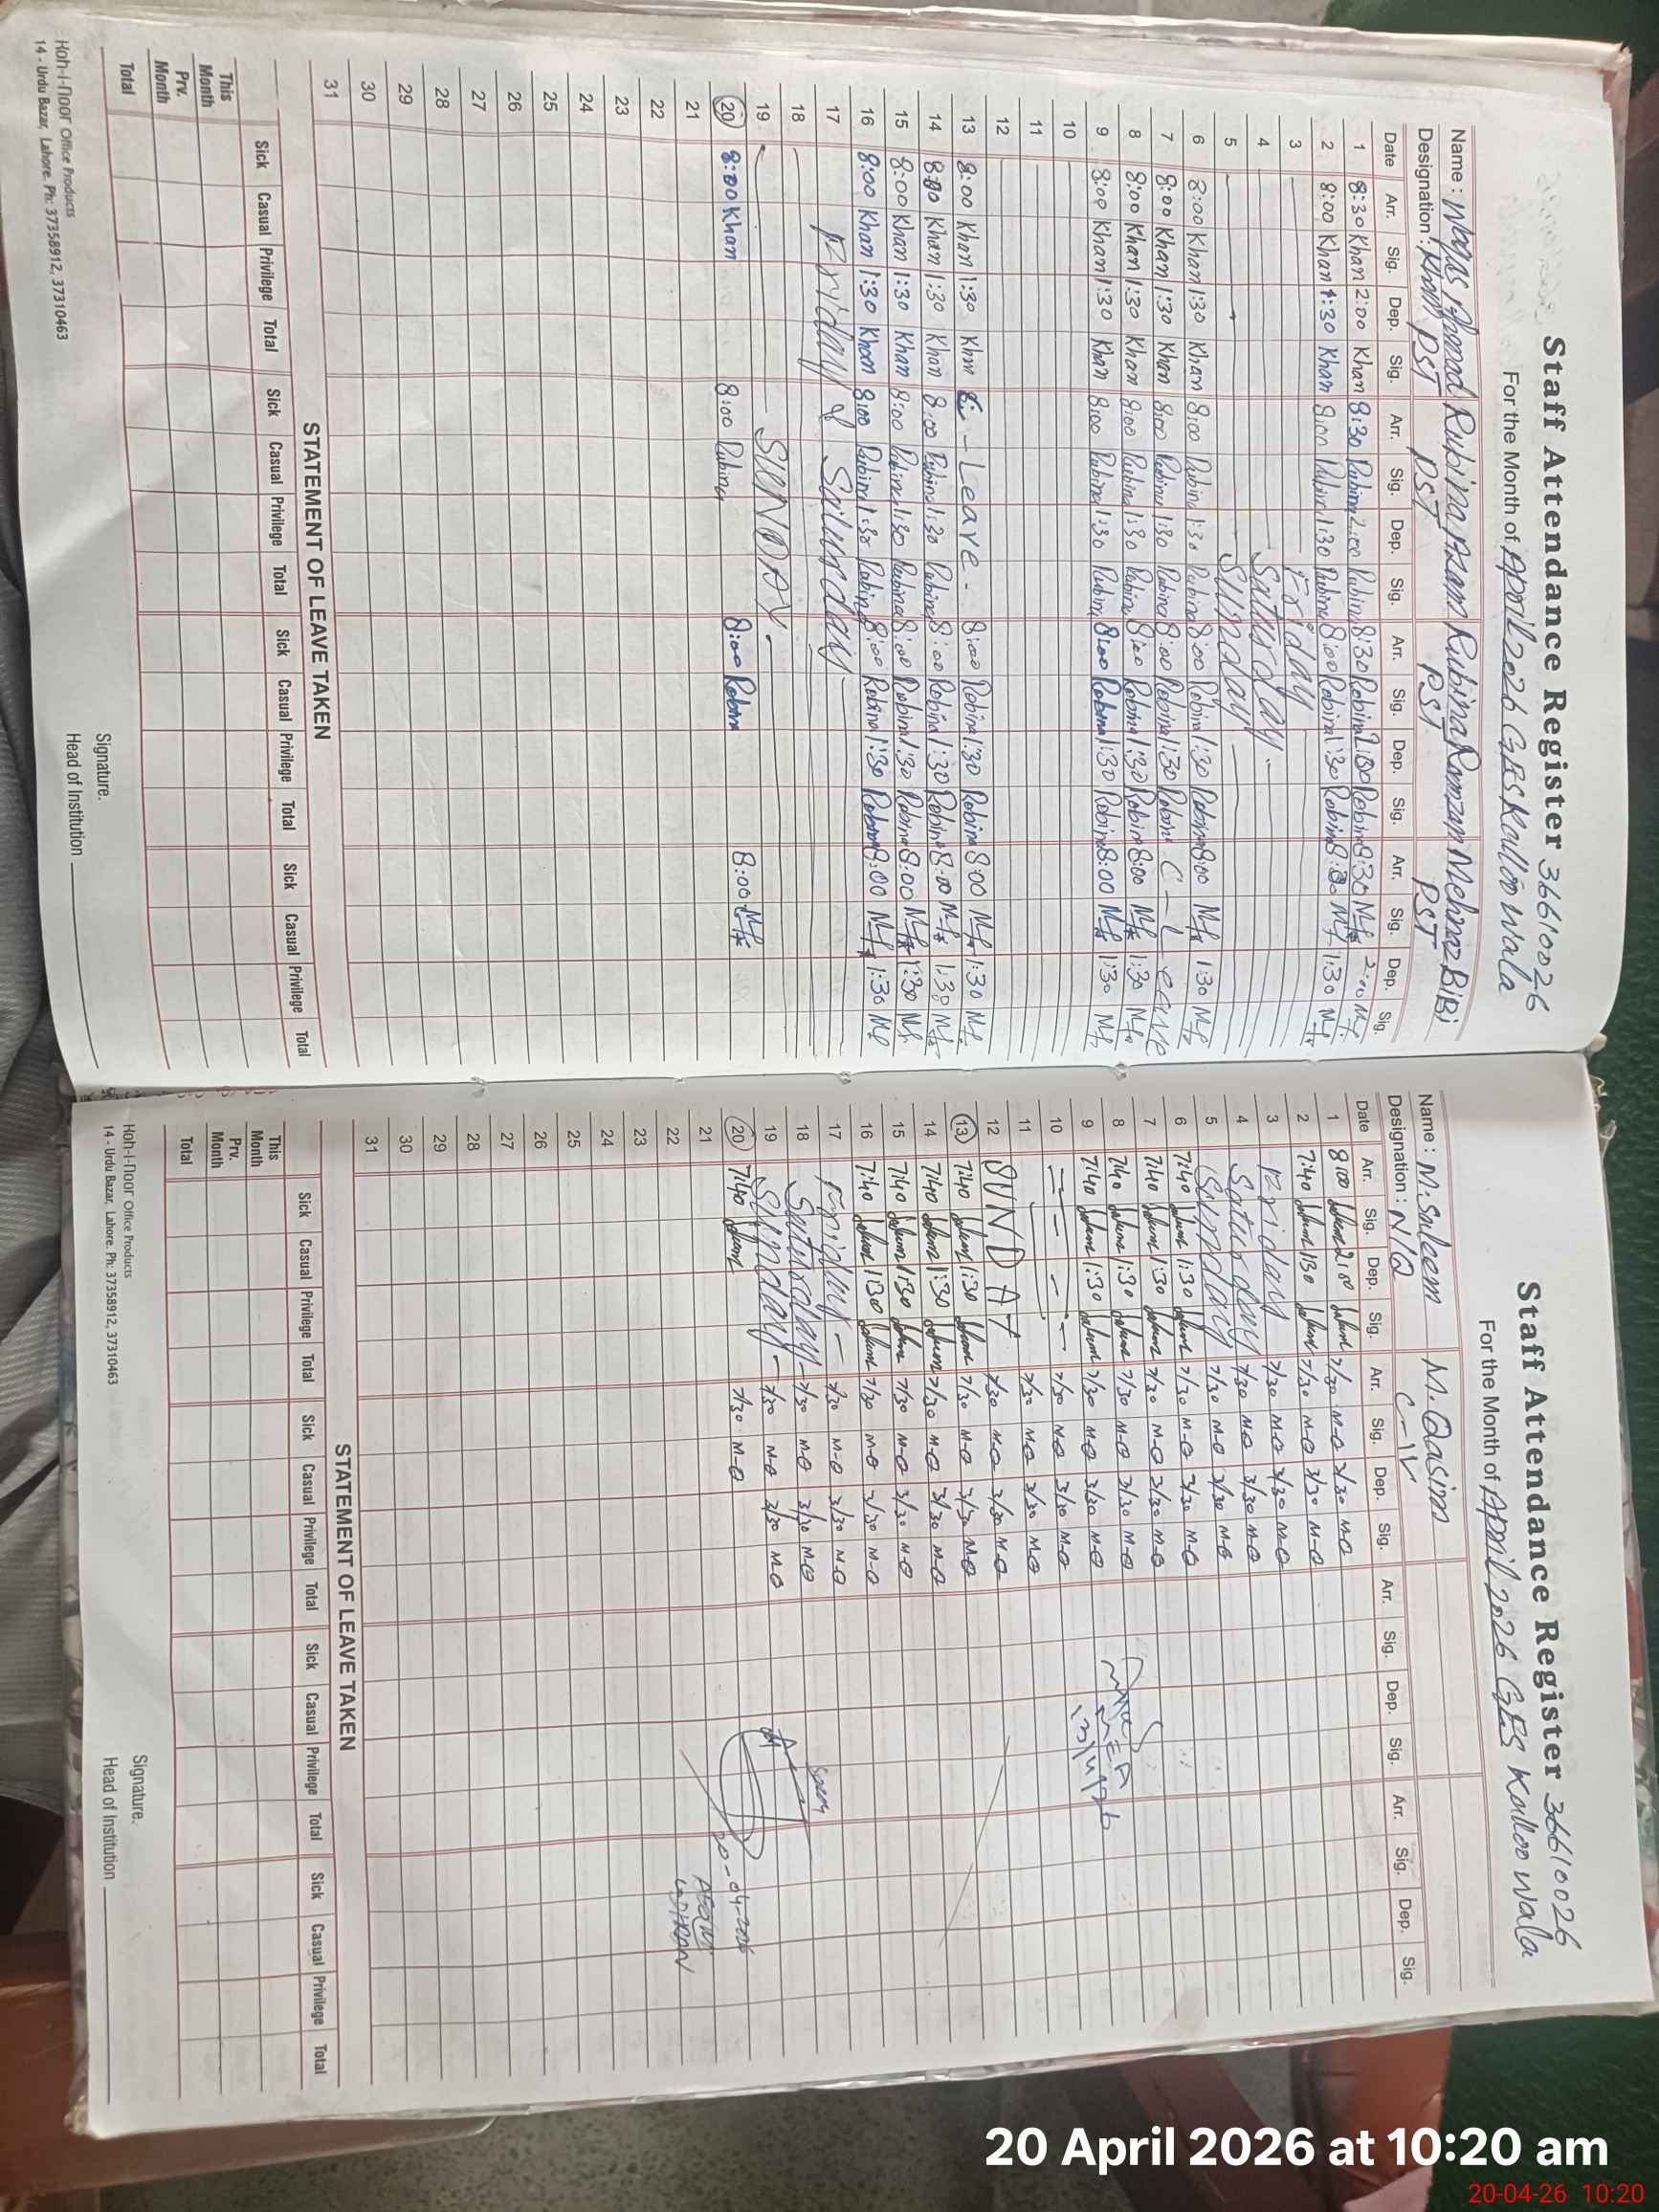 Staff Attendance Register 36610026
For the Month of April 2026 GES Kalloo Wala
Name : Waqas Ahmad Rubina Azam Rubina Ramzan Mehnaz BiBi
Designation : Khan PST PST PST PST
Date Arr. Sig. Dep. Sig. Arr. Sig. Dep. Sig. Arr. Sig. Dep. Sig. Arr. Sig. Dep. Sig.
1 8:30 Khan 2:00 Khan 8:30 Rubina 2:00 Rubina 8:30 Robina 2:00 Robina 8:30 2:00
2 8:00 Khan 1:30 Khan 8:00 Rubina 1:30 Rubina 8:00 Robina 1:30 Robina 8:00 1:30
3 Friday
4 Saturday
5 Sunday
6 8:00 Khan 1:30 Khan 8:00 Rubina 1:30 Rubina 8:00 Robina 1:30 Robina 8:00 1:30
7 8:00 Khan 1:30 Khan 8:00 Rubina 1:30 Rubina 8:00 Robina 1:30 Robina C - Leave
8 8:00 Khan 1:30 Khan 8:00 Rubina 1:30 Rubina 8:00 Robina 1:30 Robina 8:00 1:30
9 8:00 Khan 1:30 Khan 8:00 Rubina 1:30 Rubina 8:00 Robina 1:30 Robina 8:00 1:30
10
11
12
13 8:00 Khan 1:30 Khan - Leave - 8:00 Robina 1:30 Robina 8:00 1:30
14 8:00 Khan 1:30 Khan 8:00 Rubina 1:30 Rubina 8:00 Robina 1:30 Robina 8:00 1:30
15 8:00 Khan 1:30 Khan 8:00 Rubina 1:30 Rubina 8:00 Robina 1:30 Robina 8:00 1:30
16 8:00 Khan 1:30 Khan 8:00 Rubina 1:30 Rubina 8:00 Robina 1:30 Robina 8:00 1:30
17 Friday & Saturday
18
19 SUNDAY
20 8:00 Khan 8:00 Rubina 8:00 Robina 8:00
21
22
23
24
25
26
27
28
29
30
31
STATEMENT OF LEAVE TAKEN
Sick Casual Privilege Total Sick Casual Privilege Total Sick Casual Privilege Total Sick Casual Privilege Total
This Month
Prv. Month
Total
Signature.
Head of Institution
Koh-i-noor Office Products
14 - Urdu Bazar, Lahore. Ph: 37358912, 37310463
Staff Attendance Register 36610026
For the Month of April 2026 GES Kalloo Wala
Name : M. Saleem M. Qasim
Designation : N/Q C-IV
Date Arr. Sig. Dep. Sig. Arr. Sig. Dep. Sig. Arr. Sig. Dep. Sig. Arr. Sig. Dep. Sig.
1 8:00 Saleem 2:00 Saleem 7/30 M-Q 3/30 M-Q
2 7:40 Saleem 1:30 Saleem 7/30 M-Q 3/30 M-Q
3 Friday 7/30 M-Q 3/30 M-Q
4 Saturday 7/30 M-Q 3/30 M-Q
5 Sunday 7/30 M-Q 3/30 M-Q
6 7:40 Saleem 1:30 Saleem 7/30 M-Q 3/30 M-Q
7 7:40 Saleem 1:30 Saleem 7/30 M-Q 3/30 M-Q
8 7:40 Saleem 1:30 Saleem 7/30 M-Q 3/30 M-Q
9 7:40 Saleem 1:30 Saleem 7/30 M-Q 3/30 M-Q
10 7/30 M-Q 3/30 M-Q
11 7/30 M-Q 3/30 M-Q
12 SUNDAY 7/30 M-Q 3/30 M-Q
13 7:40 Saleem 1:30 Saleem 7/30 M-Q 3/30 M-Q
14 7:40 Saleem 1:30 Saleem 7/30 M-Q 3/30 M-Q
15 7:40 Saleem 1:30 Saleem 7/30 M-Q 3/30 M-Q
16 7:40 Saleem 1:30 Saleem 7/30 M-Q 3/30 M-Q
17 Friday 7/30 M-Q 3/30 M-Q
18 Saturday 7/30 M-Q 3/30 M-Q
19 Sunday 7/30 M-Q 3/30 M-Q
20 7:40 Saleem 7/30 M-Q
MEA
20-04-2026
LODHRAN
21
22
23
24
25
26
27
28
29
30
31
STATEMENT OF LEAVE TAKEN
Sick Casual Privilege Total Sick Casual Privilege Total Sick Casual Privilege Total Sick Casual Privilege Total
This Month
Prv. Month
Total
Signature.
Head of Institution
Koh-i-noor Office Products
14 - Urdu Bazar, Lahore. Ph: 37358912, 37310463
20 April 2026 at 10:20 am
20-04-26 10:20